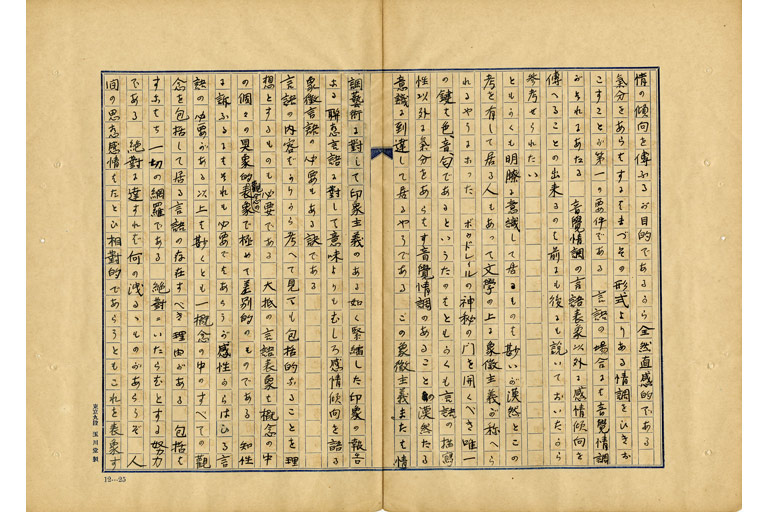 情の傾向を傳ふるが目的であるから全然直感的である
氣分をあらはするにもまづその形式よりある情調をひきお
こすことが第一の要件である 言語の場合にも音覺情調
がそれにあたる 音覺情調の言語表象以外に感情傾向を
傳へることの出來るのも前にも後にも説いておいたから
参考せられたい
ともかくも明瞭に意識して居るものも尠いが漠然とこの
考を有して居る人もあつて文學の上に象徴主義が称へら
れるやうになつた ボウドレイルの神秘の門を開くべき唯一
の鍵は色、音、句であるといつたのもともかくも言語の描寫
性以外に氣分をあらはす音覺情調のあること漠然たる
意識に到達して居るやうである この象徴主義もたゞ情
調藝術に對して印象主義のある如く緊縮した印象の報告
による 聯想言語に對して意味よりもむしろ感情傾向を語る
象徴言語の必要もある訣である
言語の内容てうから考へて見ても包括的なることを理
想とするものも必要である 大抵の言語表象は概念の中
の個々の具象的觀念の表象で極めて差別的のものである 知性
に訴ふるにはそれも必要でもあらうが感性からはひる言
語の必要がある以上は尠くとも一概念の中のすべての觀
念を包括して居る言語の存在すべき理由がある 包括は
すなはち一切の網羅である 絶對にいたらむとする努力
である 絶對に達すれば何の洩るゝものがあらうぞ 人
間の思想感情はたとひ相對的であらうともこれを表象す
東京九段 玉川堂製
12—25